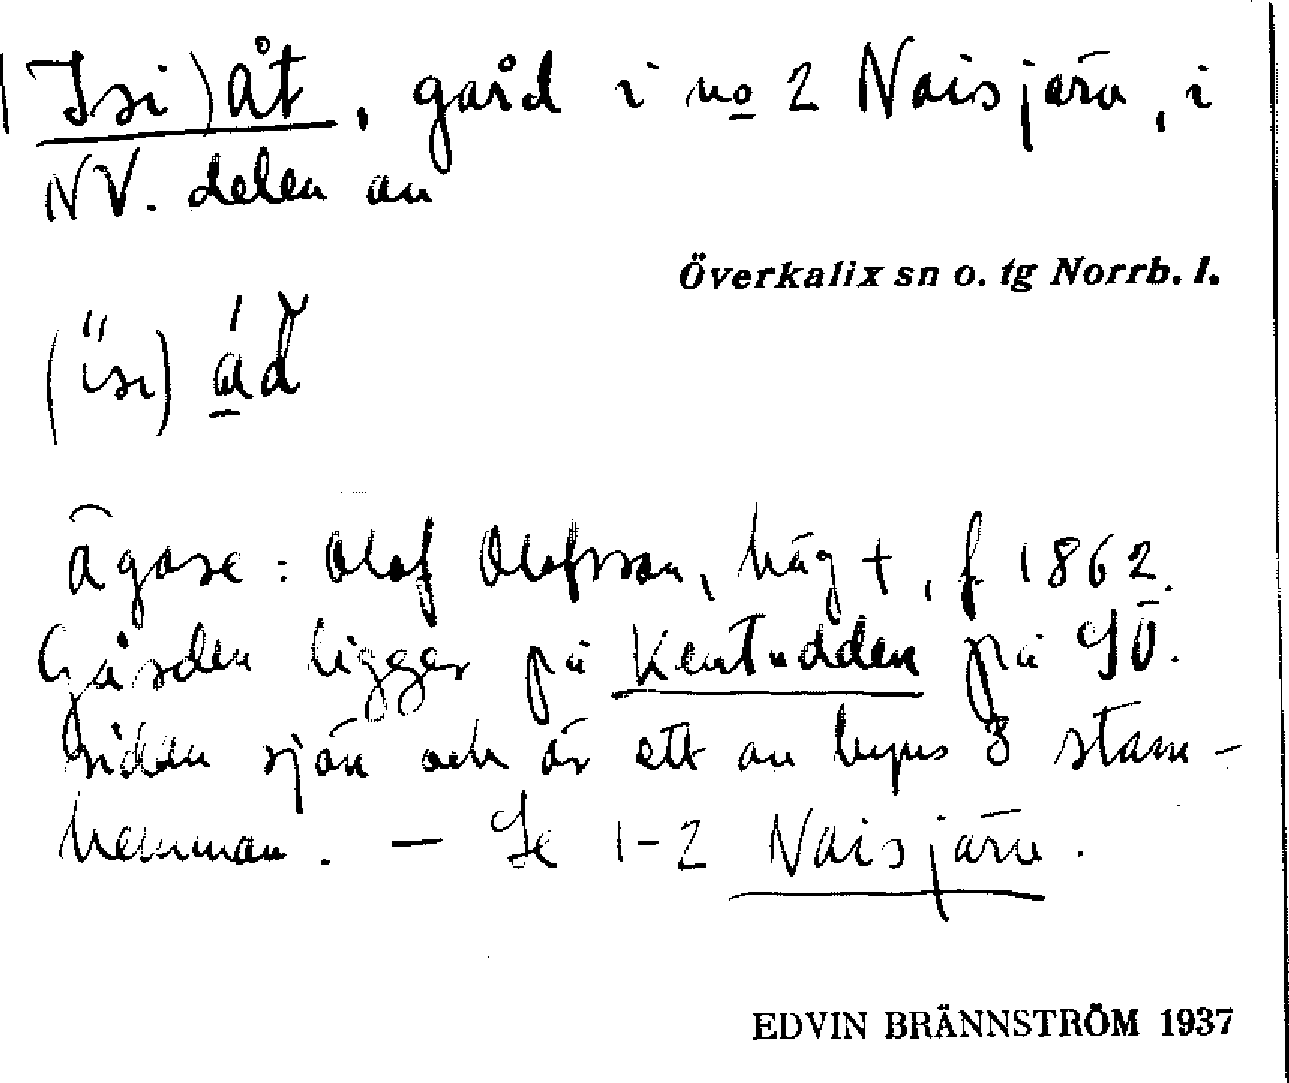 (Isi) åt, gård i no 2 Naisjärv, i
NV. delen av
Överkalix sn o. tg Norrb. l.
ägare: Olof Olofsson, häg +, f 1862.
Gården ligger på Kentudden på SÖ.
sidan sjön och är ett av byns 3 stam-
hemman. — Se 1-2 Naisjärv.
EDVIN BRÄNNSTRÖM 1937